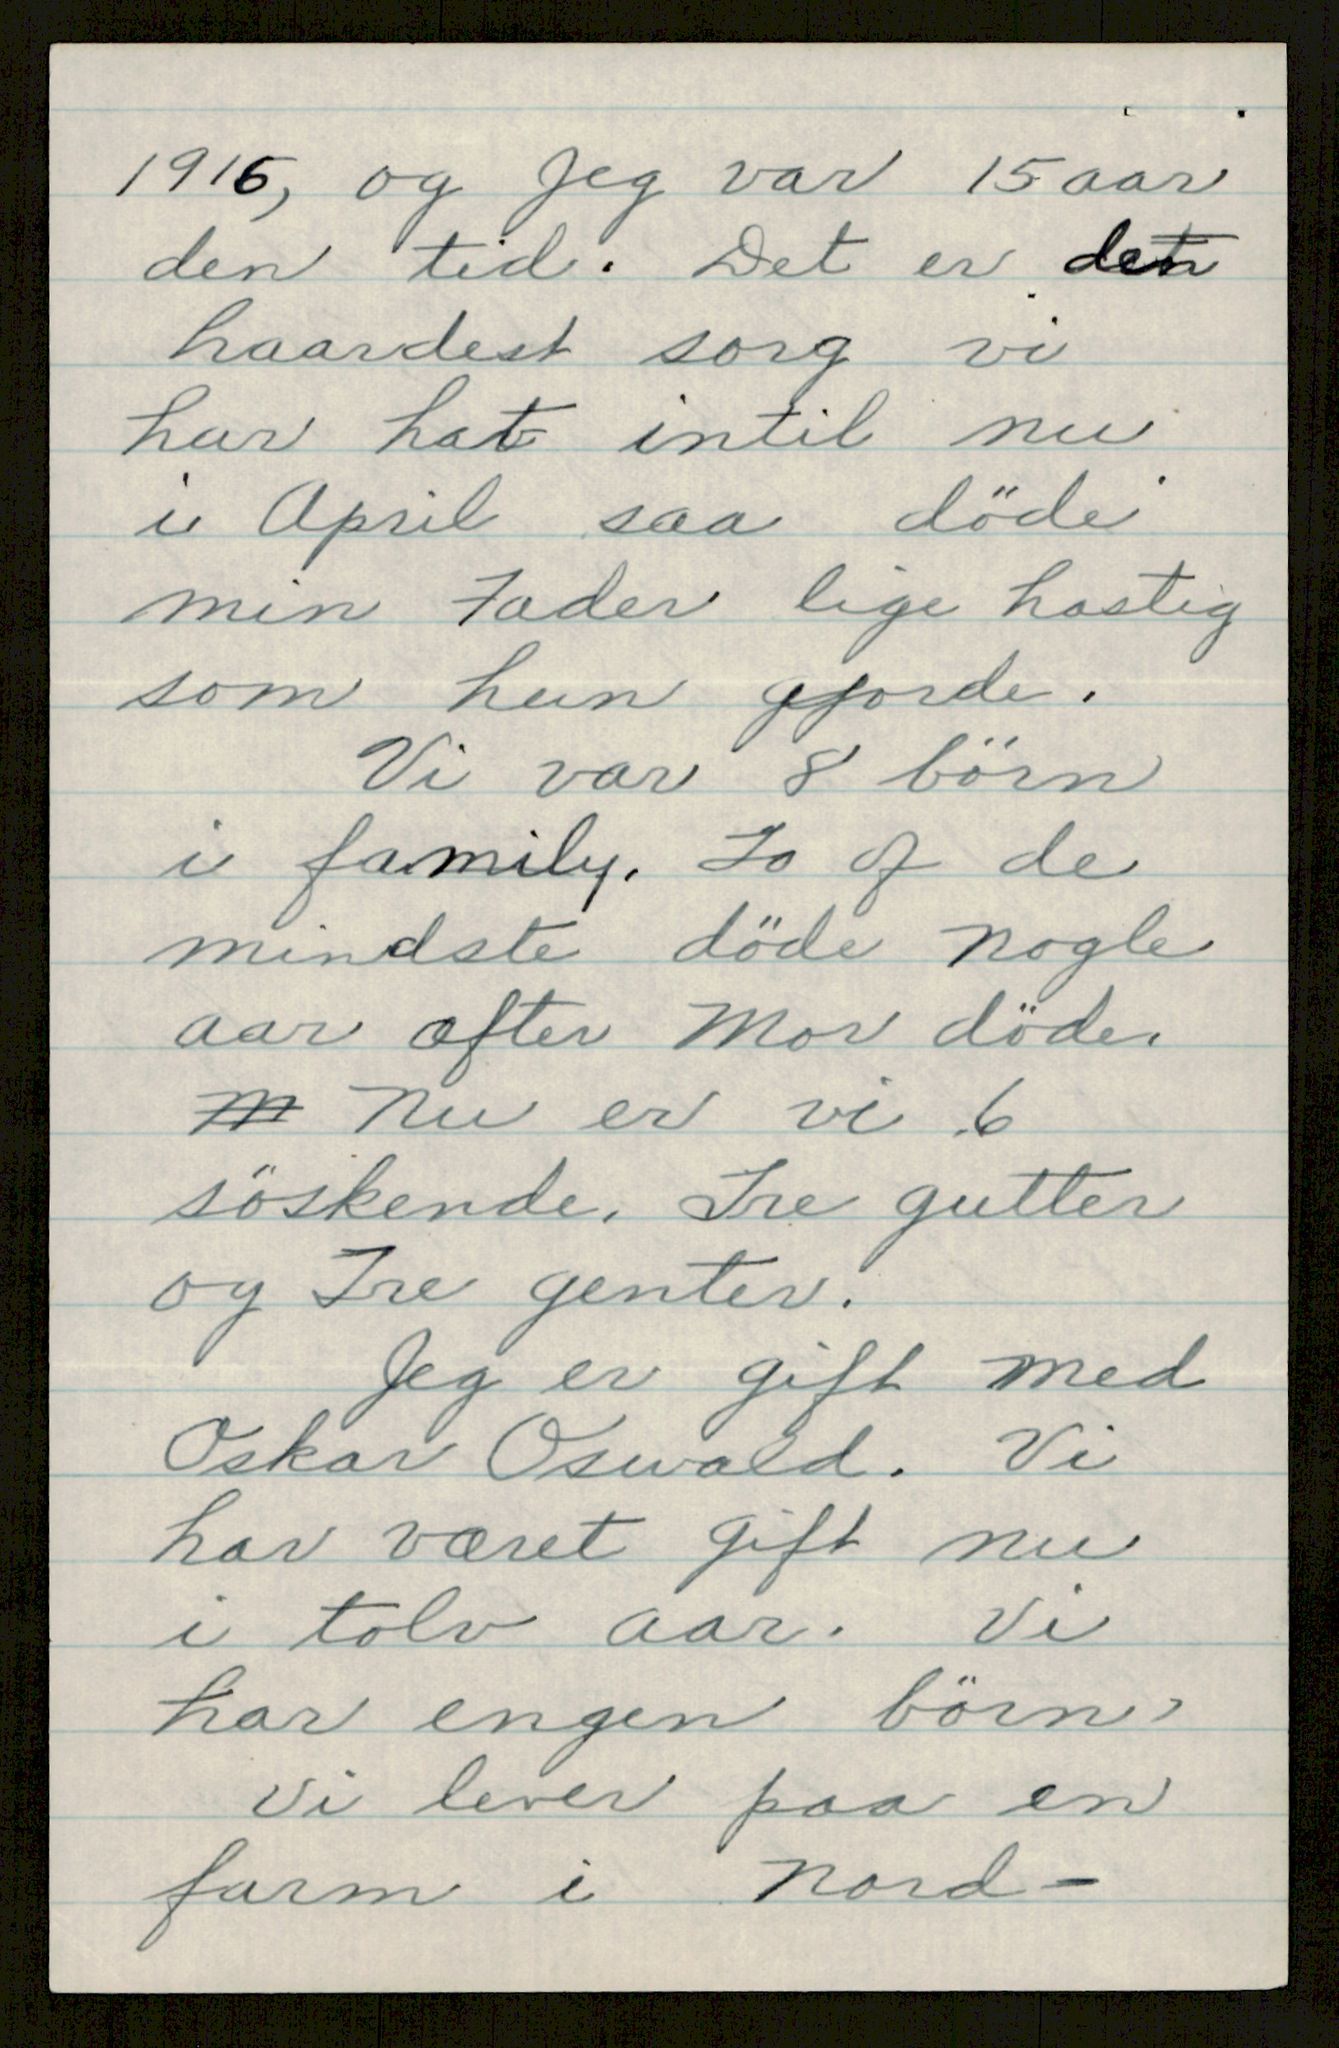 1916, og Jeg var 15 aar
den tid. Det er den
haardest sorg vi
har hat intil nu
i April saa döde
min Fader lige hastig
som hun gjorde.
Vi var 8 börn
i family. To af de
mindste döde nogle
aar efter Mor döde.
Nu er vi 6
söskende. Tre gutter
og Tre genter.
Jeg er gift med
Oskar Oswald. Vi
har været gift nu
i tolv aar. Vi
har engen börn,
Vi lever paa en
farm i Nord-